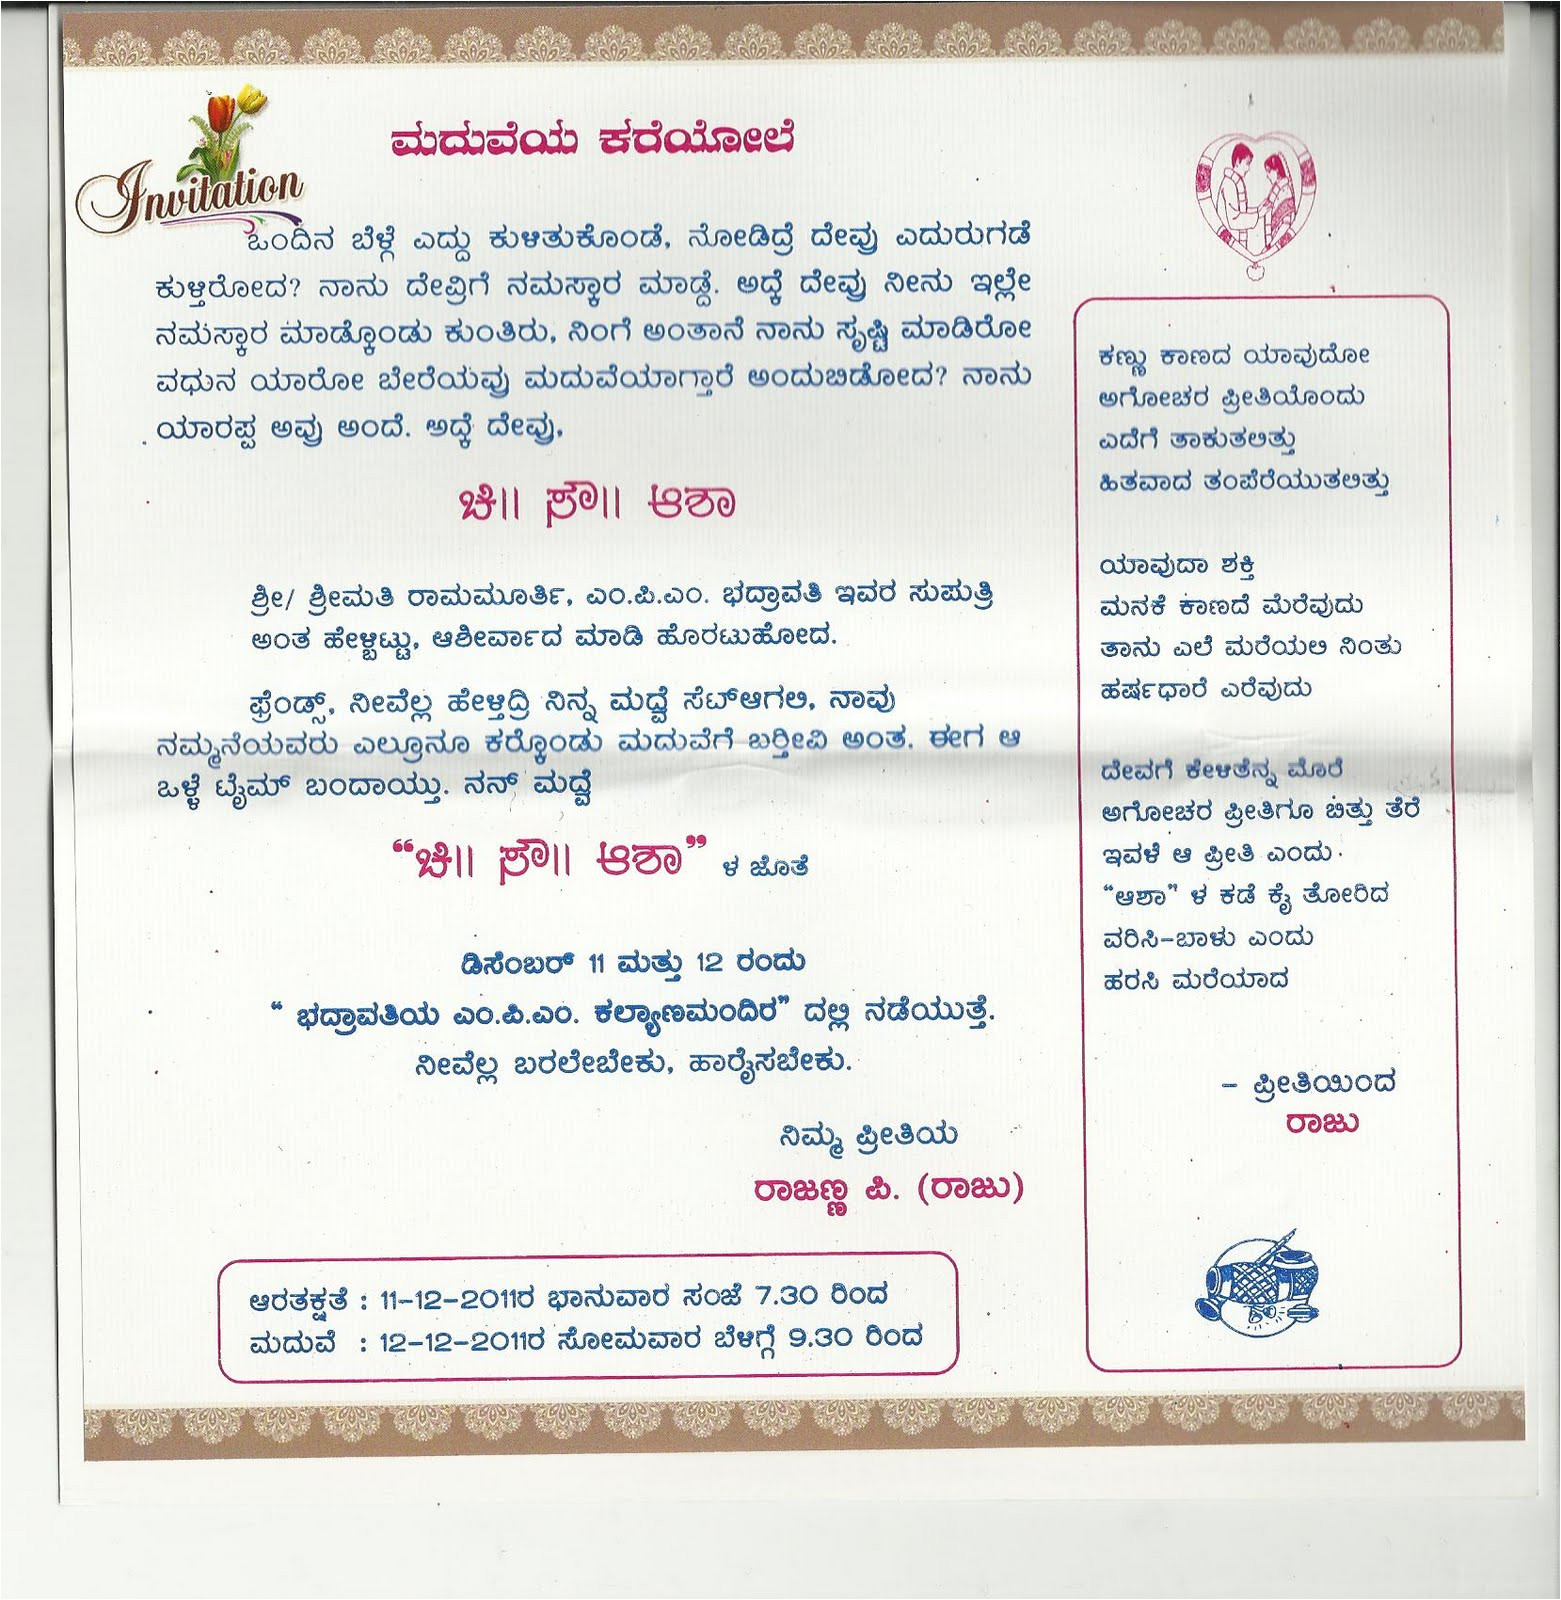 Invitation
ಮದುವೆಯ ಕರೆಯೋಲೆ
ಒಂದಿನ ಬೆಳ್ಗೆ ಎದ್ದು ಕುಳಿತುಕೊಂಡೆ, ನೋಡಿದ್ರೆ ದೇವ್ರು ಎದುರುಗಡೆ
ಕುಳ್ತಿರೋದ? ನಾನು ದೇವ್ರಿಗೆ ನಮಸ್ಕಾರ ಮಾಡ್ದೆ. ಅದ್ಕೆ ದೇವ್ರು ನೀನು ಇಲ್ಲೇ
ನಮಸ್ಕಾರ ಮಾಡ್ಕೊಂಡು ಕುಂತಿರು, ನಿಂಗೆ ಅಂತಾನೆ ನಾನು ಸೃಷ್ಟಿ ಮಾಡಿರೋ
ವಧುನ ಯಾರೋ ಬೇರೆಯವ್ರು ಮದುವೆಯಾಗ್ತಾರೆ ಅಂದುಬಿಡೋದ? ನಾನು
ಯಾರಪ್ಪ ಅವ್ರು ಅಂದೆ. ಅದ್ಕೆ ದೇವ್ರು,
ಚಿ|| ಸೌ|| ಆಶಾ
ಶ್ರೀ/ ಶ್ರೀಮತಿ ರಾಮಮೂರ್ತಿ, ಎಂ.ಪಿ.ಎಂ. ಭದ್ರಾವತಿ ಇವರ ಸುಪುತ್ರಿ
ಅಂತ ಹೇಳ್ಬಿಟ್ಟು, ಆಶೀರ್ವಾದ ಮಾಡಿ ಹೊರಟುಹೋದ.
ಫ್ರೆಂಡ್ಸ್, ನೀವೆಲ್ಲ ಹೇಳ್ತಿದ್ರಿ ನಿನ್ನ ಮದ್ವೆ ಸೆಟ್‌ಆಗಲಿ, ನಾವು
ನಮ್ಮನೆಯವರು ಎಲ್ರೂನೂ ಕರ್‍ಕೊಂಡು ಮದುವೆಗೆ ಬರ್‍ತೀವಿ ಅಂತ. ಈಗ ಆ
ಒಳ್ಳೆ ಟೈಮ್ ಬಂದಾಯ್ತು. ನನ್ ಮದ್ವೆ
“ಚಿ|| ಸೌ|| ಆಶಾ” ಳ ಜೊತೆ
ಡಿಸೆಂಬರ್ 11 ಮತ್ತು 12 ರಂದು
“ ಭದ್ರಾವತಿಯ ಎಂ.ಪಿ.ಎಂ. ಕಲ್ಯಾಣಮಂದಿರ” ದಲ್ಲಿ ನಡೆಯುತ್ತೆ.
ನೀವೆಲ್ಲ ಬರಲೇಬೇಕು, ಹಾರೈಸಬೇಕು.
ನಿಮ್ಮ ಪ್ರೀತಿಯ
ರಾಜಣ್ಣ ಪಿ. (ರಾಜು)
ಆರತಕ್ಷತೆ : 11-12-2011ರ ಭಾನುವಾರ ಸಂಜೆ 7.30 ರಿಂದ
ಮದುವೆ : 12-12-2011ರ ಸೋಮವಾರ ಬೆಳಿಗ್ಗೆ 9.30 ರಿಂದ
ಕಣ್ಣು ಕಾಣದ ಯಾವುದೋ
ಅಗೋಚರ ಪ್ರೀತಿಯೊಂದು
ಎದೆಗೆ ತಾಕುತಲಿತ್ತು
ಹಿತವಾದ ತಂಪೆರೆಯುತಲಿತ್ತು
ಯಾವುದಾ ಶಕ್ತಿ
ಮನಕೆ ಕಾಣದೆ ಮೆರೆವುದು
ತಾನು ಎಲೆ ಮರೆಯಲಿ ನಿಂತು
ಹರ್ಷಧಾರೆ ಎರೆವುದು
ದೇವಗೆ ಕೇಳಿತೆನ್ನ ಮೊರೆ
ಅಗೋಚರ ಪ್ರೀತಿಗೂ ಬಿತ್ತು ತೆರೆ
ಇವಳೆ ಆ ಪ್ರೀತಿ ಎಂದು
“ಆಶಾ” ಳ ಕಡೆ ಕೈ ತೋರಿದ
ವರಿಸಿ-ಬಾಳು ಎಂದು
ಹರಸಿ ಮರೆಯಾದ
– ಪ್ರೀತಿಯಿಂದ
ರಾಜು